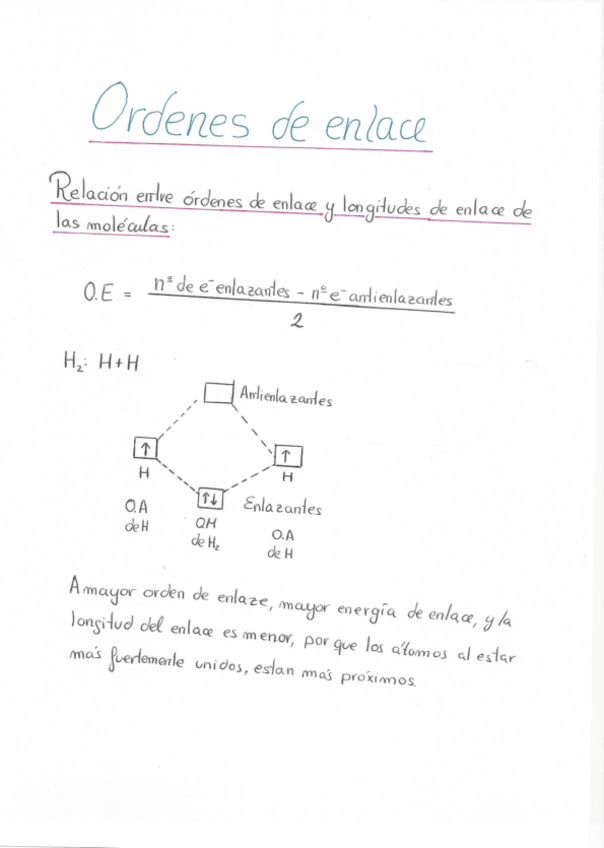 Ordenes de enlace
Relación entre órdenes de enlace y longitudes de enlace de
las moléculas:
O.E = nº de e⁻ enlazantes - nº e⁻ antienlazantes
2
H₂: H+H
Antienlazantes
↑ ↑
H H
↑↓ Enlazantes
O.A
de H
O.M
de H₂
O.A
de H
A mayor orden de enlaze, mayor energía de enlace, y la
longitud del enlace es menor, por que los átomos al estar
más fuertemente unidos, estan más próximos.